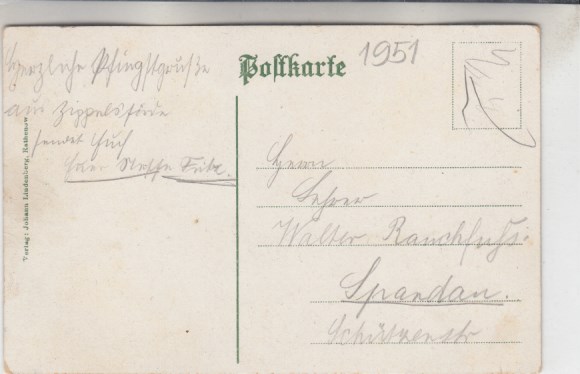 Herzliche Pfingstgrüße
aus Zippelsförde
sendet Euch
Verlag: Johann Lindenberg, Rathenow.
Postkarte
1951
Herrn
Lehrer
Walter Rauchfuß.
Spandau.
Schützenstr